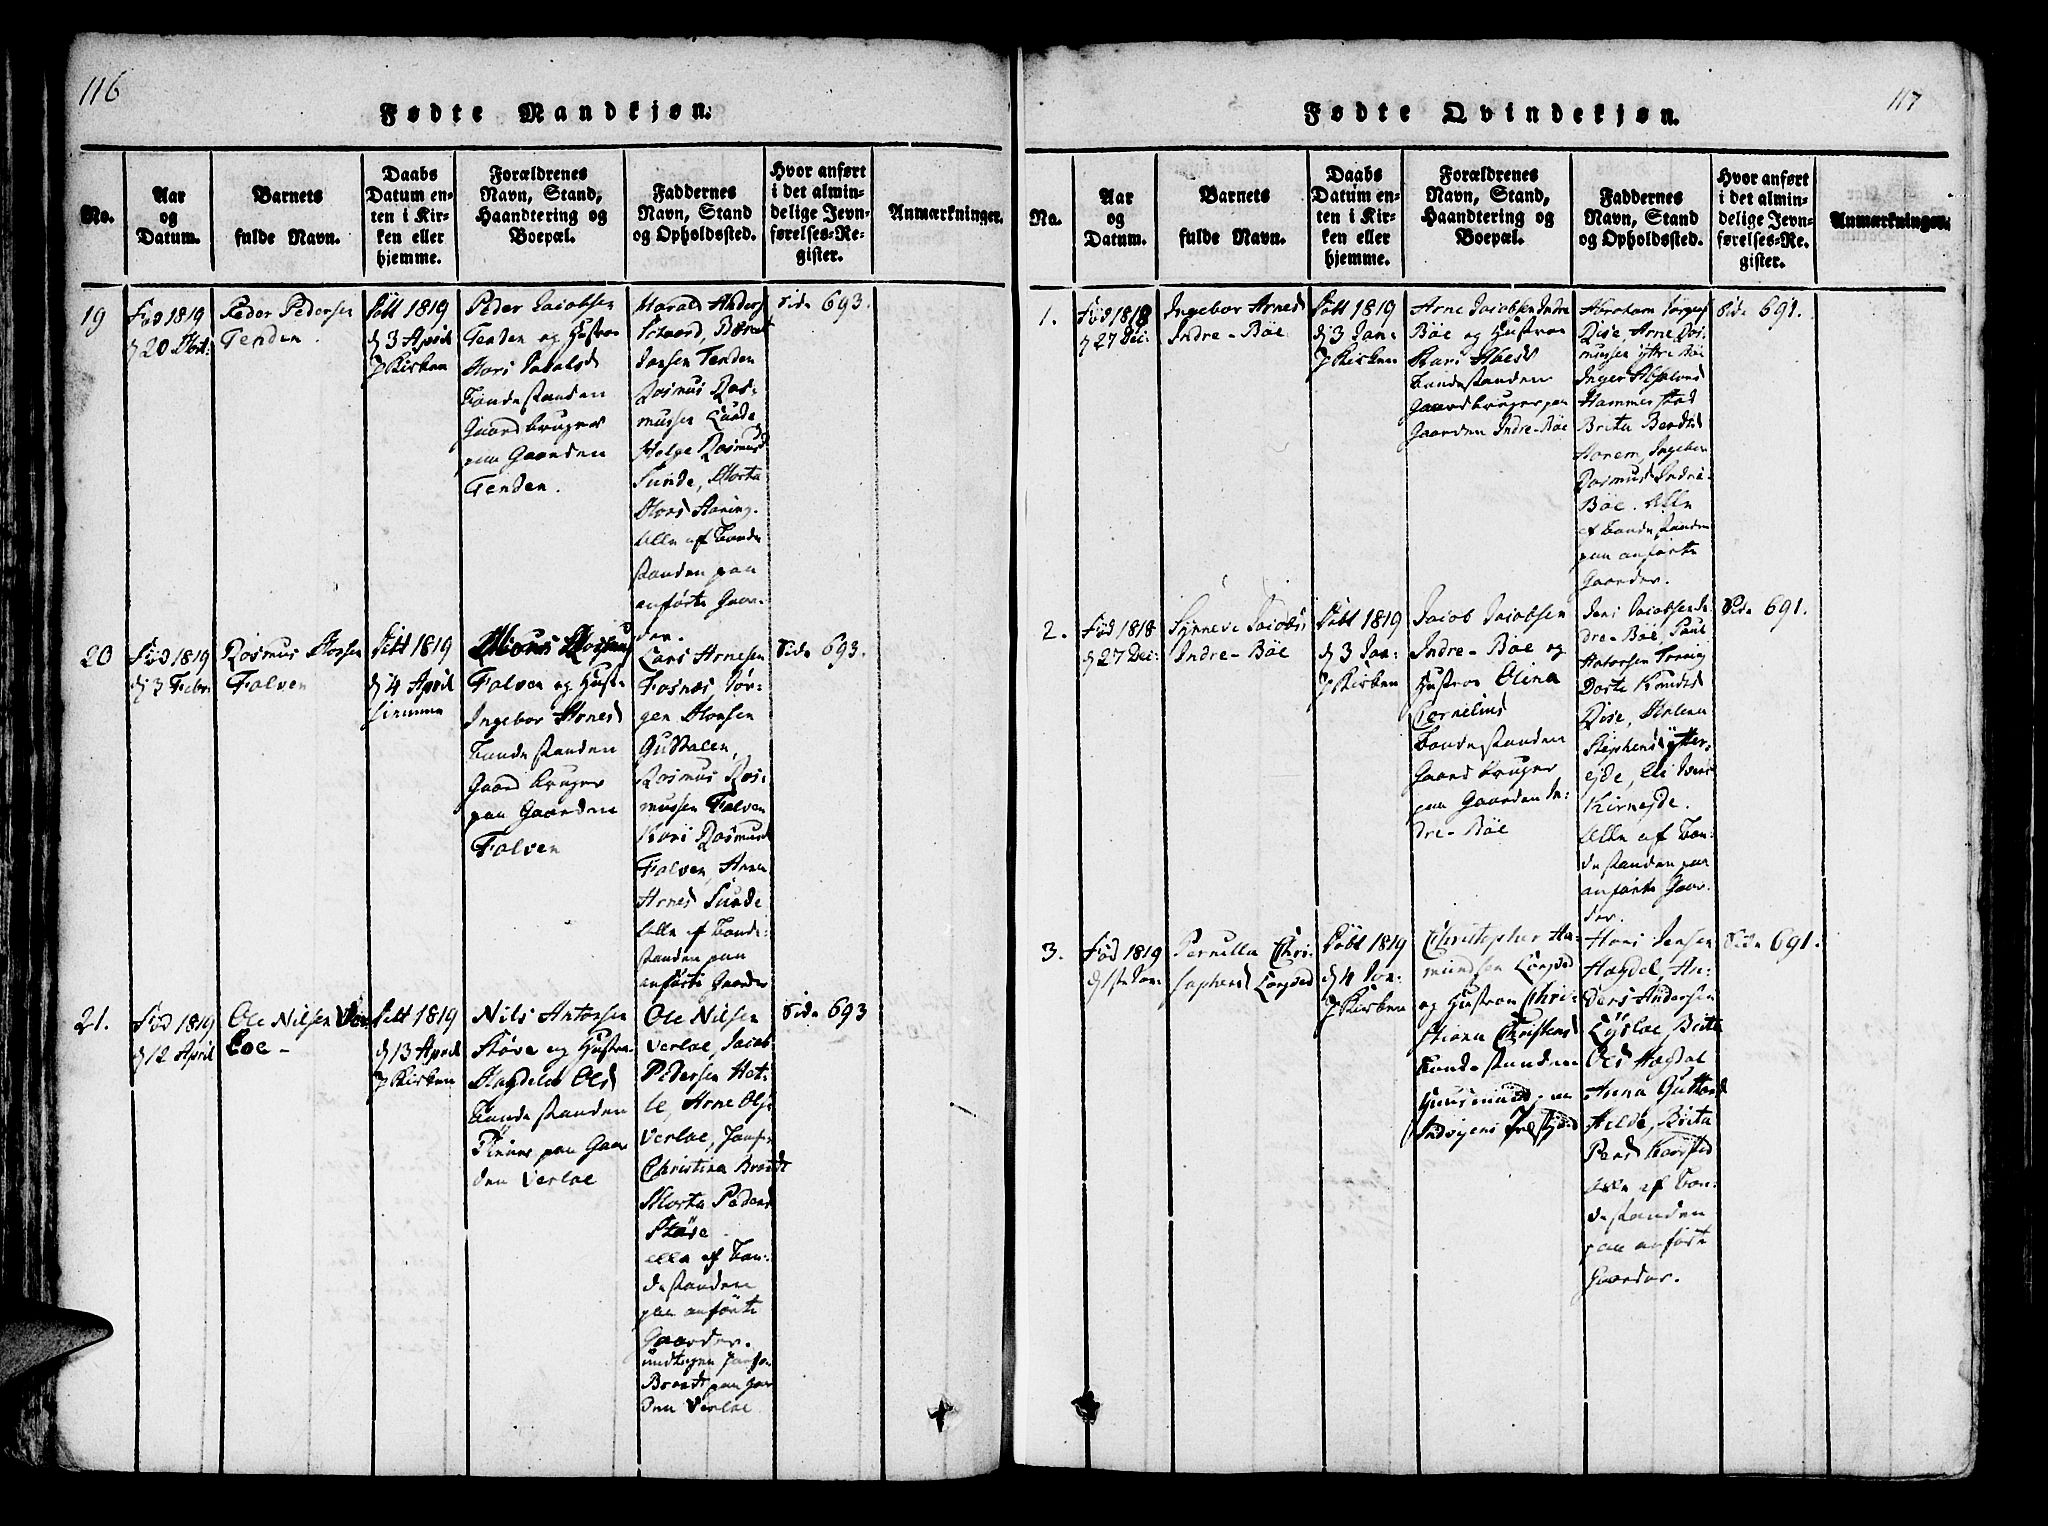 116
Fødte Mandkjøn.
No.
Aar
og
Datum.
Barnets
fulde Navn.
Daabs
Datum en-
ten i Kir-
ken eller
hjemme.
Forældrenes
Navn, Stand,
Haandtering og
Boepæl.
Faddernes
Navn, Stand
og Opholdssted.
Hvor anført
i det almin-
delige Jevn-
førelses-Re-
gister.
Anmærkninger.
19
Fød 1819
d 20 Mart:
Peder Pedersen
Tenden.
Døbt 1819
d 3 April
i Kirken
Peder Jacobsen
Tenden og Hustroe
Bondestanden
Gaardbruger
paa Gaarden
Tenden.
Harald Anders
Jansen Tenden
Rasmus Ras-
mussen
Helge Rasmusd
Sunde, Marta
Alle af Bonde
standen paa
anførte Gaar-
der.
Side 693.
20
Fød 1819
d 3 Febr:
Rasmus
Falven
Døbt 1819
d 4 April
hiemme
Falven og Hust-
Ingebor Arnesd
Bondestanden
Gaardbruger
paa Gaarden
Falven
Lars Arnesen
Fosnæs, Jør-
gen Monsen
Guddalen,
Rasmus Ras-
mussen Falven
Kari Rasmusd
Falven, Anna
Arnesd Sunde
Alle af Bonde-
standen paa
anførte Gaarder
Side 693.
21.
Fød 1819
d 12 April
Ole Nilsen Ver
Loe -
Døbt 1819
d 13 April
i Kirken
Nils Antonsen
Støve og Hustroe
Magdela Olsd
Bondestanden
paa Gaar
den Verloe
Ole Nilsen
Verloe, Jacob
Pedersen Het-
le, Arne Ols:
Verloe, Jomfr.
Christina Brandt
Marta Pedersd
Støve
alle af Bon-
destanden
paa anførte
Gaarder.
undtagen Jomfr.
Brandt paa Gaar
den Verloe
Side 693
117
Fødte Qvindekjøn.
No.
Aar
og
Datum.
Barnets
fulde Navn.
Daabs
Datum en-
ten i Kir-
ken eller
hjemme.
Forældrenes
Navn, Stand,
Haandtering og
Boepæl.
Faddernes
Navn, Stand
og Opholdssted.
Hvor anført
i det almin-
delige Jevn-
førelses-Re-
gister.
Anmærkninger.
1.
Fød 1818
d 27 Dec:
Ingebor Arnesd
Indre-Bøe
Døbt 1819
d 3 Jan:
i Kirken
Arne Jacobsen Indre
Bøe og Hustroe
Kari
Bondestanden
Gaardbruger paa
Gaarden Indre-Bøe
Abraham
Rise, Arne Ras-
mussen Ytre Bøe
Inger
Hammerstad
Brita Berdtsd
Horem, Ingebor
Rasmusd Indre-
Bøe. Alle
af Bondestanden
paa anførte
Gaarder.
Side 691.
2.
Fød 1818
d 27 Dec:
Synneve Jacobs
Indre-Bøe
Døbt 1819
d 3 Jan:
i Kirken
Jacob Jacobsen
Indre-Bøe og
Hustroe Elina
Cornelius
Bondestanden
Gaardbruger
paa Gaarden In-
dre-Bøe
Jens Jacobsen In-
dre-Bøe, Paul
Antonsen
Dorte Knudsd
Rise, Malena
Stephensd Ytter-
ejde, Eli Iversd
Kirkejde.
Alle af Bon-
destanden paa
anførte Gaar-
der.
Side 691.
3.
Fød 1819
d 1ste Jan:
Pernilla Chri-
stophersd
Døbt 1819
d 4 Jan:
i Kirken
Christopher Aa-
mundsen
og Hustroe Chri-
stiana Christensd
Bondestanden
Huusmand paa
Indvigens Præstejord
Hans Jensen
Hagdal, An-
ders Andersen
Brita
Olsd Hagdal
Anna Guttormsd
Helde, Brita
alle af Bon-
destanden
paa anførte
Gaarder.
Side 691.